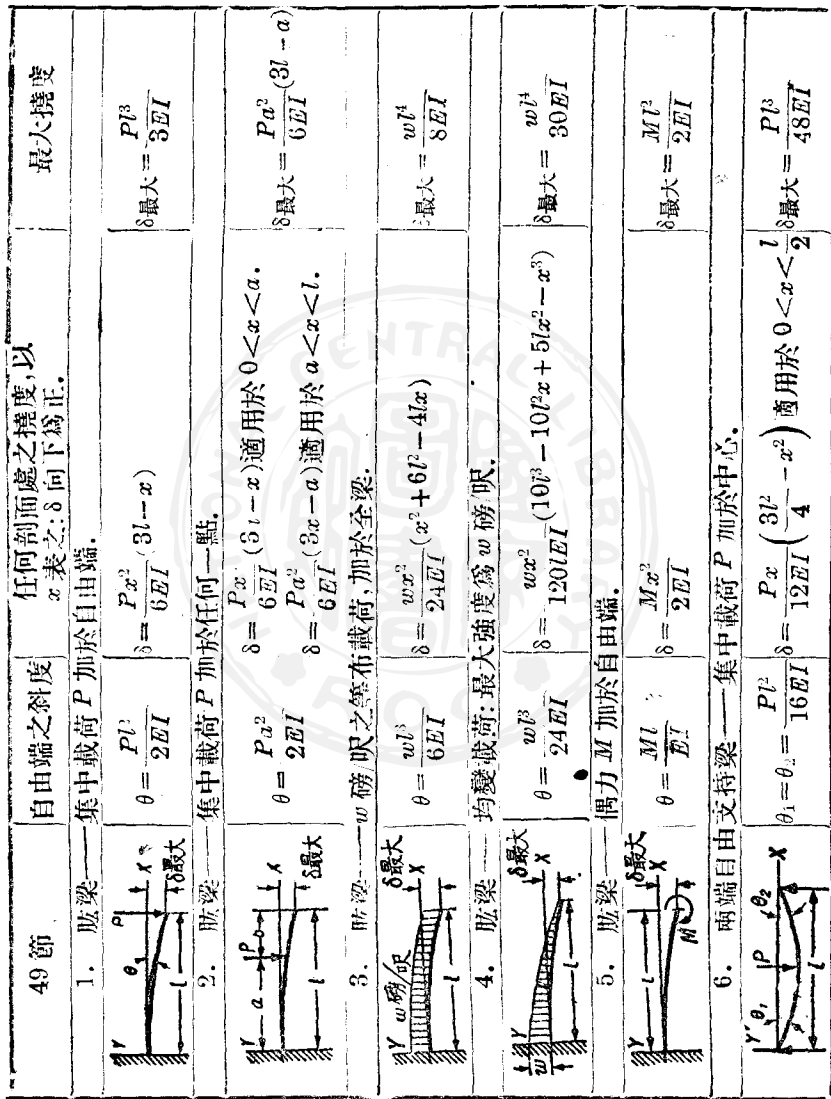 49 節 自由端之斜度 任何剖面處之撓度,以 x 表之:δ 向下爲正. 最大撓度
1. 肱梁——集中載荷 P 加於自由端.
Y θ P X l δ最大
θ = Pl²/2EI δ = Px²/6EI (3l−x) δ最大 = Pl³/3EI
2. 肱梁——集中載荷 P 加於任何一點.
Y a P b X l δ最大
θ = Pa²/2EI δ = Px²/6EI (3a−x) 適用於 0<x<a.
δ = Pa²/6EI (3x−a) 適用於 a<x<l. δ最大 = Pa²/6EI (3l−a)
3. 肱梁——w 磅/呎之等布載荷,加於全梁.
Y w磅/呎 X l δ最大
θ = wl³/6EI δ = wx²/24EI (x²+6l²−4lx) δ最大 = wl⁴/8EI
4. 肱梁——均變載荷:最大強度爲 w 磅/呎.
Y w X l δ最大
θ = wl³/24EI δ = wx²/120lEI (10l³−10l²x+5lx²−x³) δ最大 = wl⁴/30EI
5. 肱梁——偶力 M 加於自由端.
Y l X M δ最大
θ = Ml/EI δ = Mx²/2EI δ最大 = Ml²/2EI
6. 兩端自由支持梁——集中載荷 P 加於中心.
Y θ₁ P θ₂ X l
θ₁=θ₂= Pl²/16EI δ = Px/12EI (3l²/4 −x²) 適用於 0<x<l/2 δ最大 = Pl³/48EI
NATIONAL CENTRAL LIBRARY